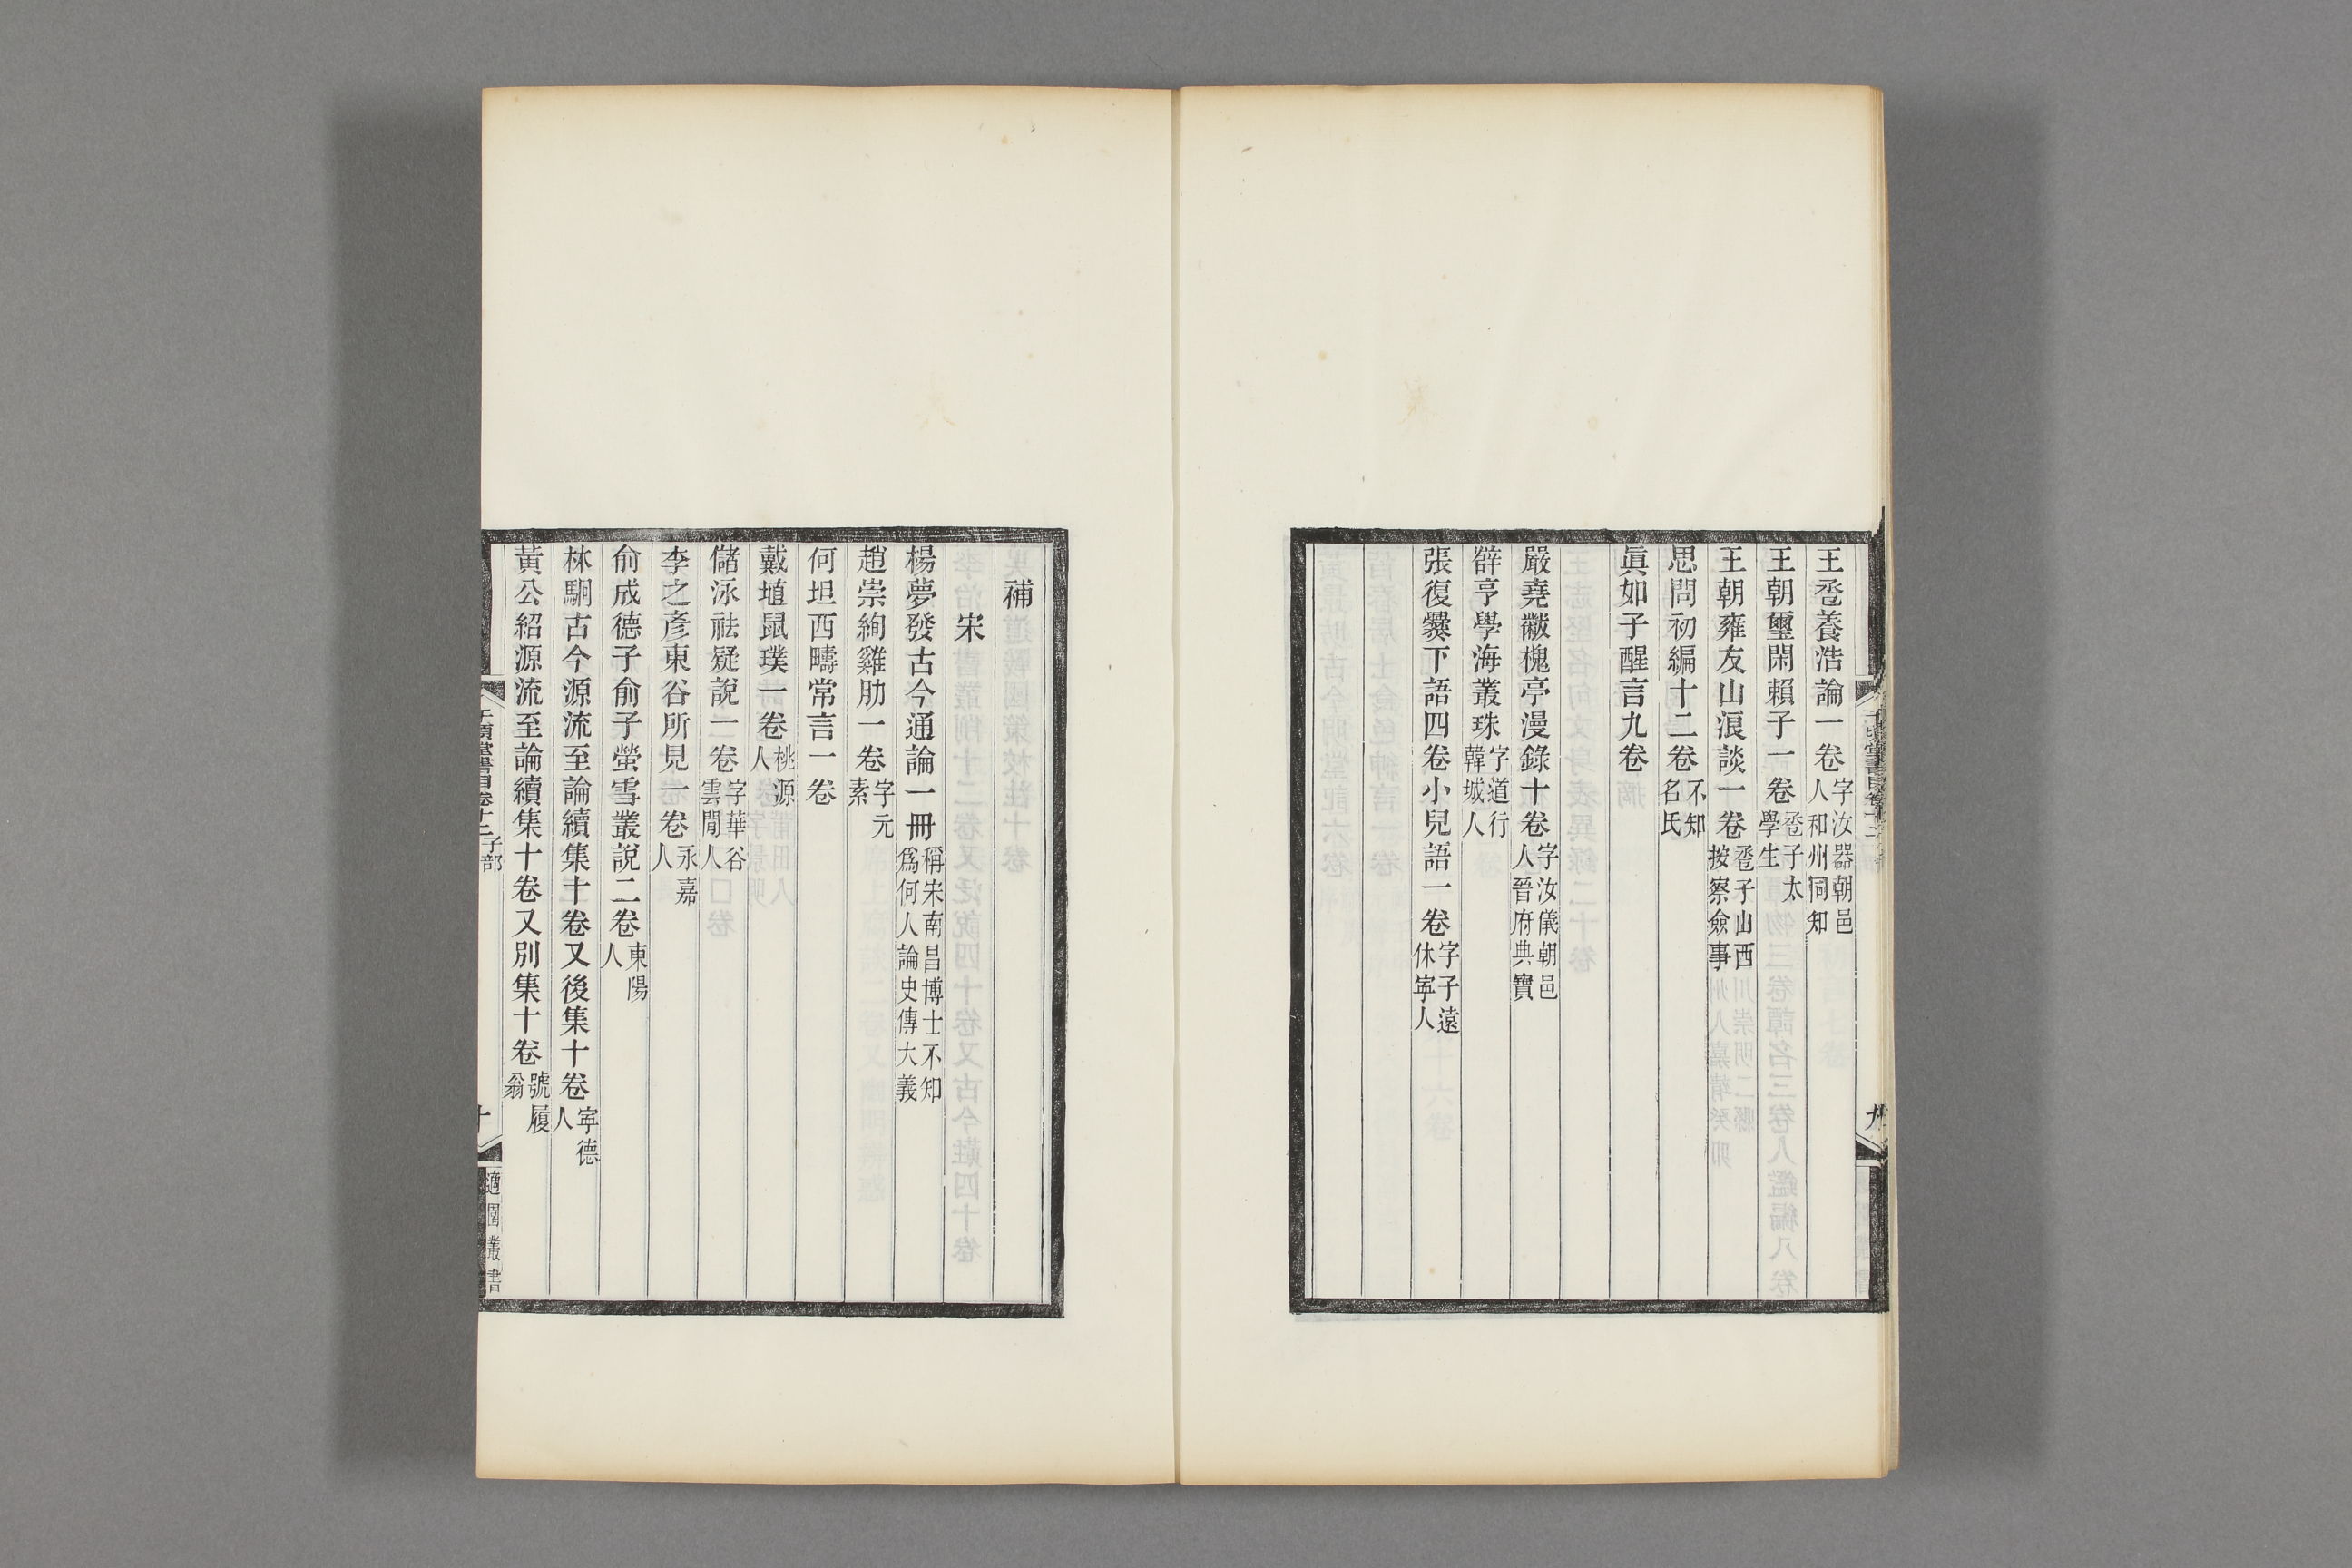 王卺養浩論一卷字汝器朝邑人和州同知
王朝璽閑賴子一卷卺子太學生
王朝雍友山浪談一卷卺子山西按察僉事
思問初編十二卷不知名氏
眞如子醒言九卷
嚴堯黻槐亭漫錄十卷字汝儀朝邑人晉府典寶
薛亨學海叢珠字道行韓城人
張復爨下語四卷小兒語一卷字子遠休寧人
補
宋
楊夢發古今通論一冊稱宋南昌博士不知爲何人論史傳大義
趙崇絢雞肋一卷字元素
何坦西疇常言一卷
戴埴鼠璞一卷桃源人
儲泳祛疑說一卷字華谷雲間人
李之彥東谷所見一卷永嘉人
俞成德子俞子螢雪叢說二卷東陽人
林駧古今源流至論續集十卷又後集十卷寧德人
黃公紹源流至論續集十卷又別集十卷號履翁
千頃堂書目卷十二子部
十
適園叢書